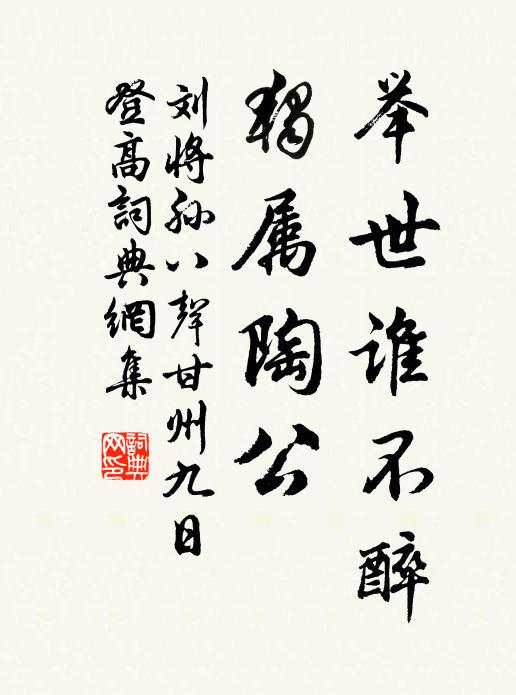 举世谁不醉
独属陶公
刘将孙八声甘州九日
登高词典網集
詞典网印